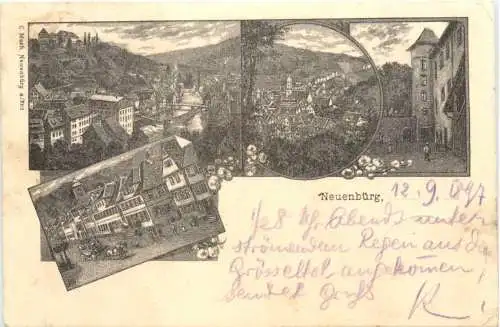 C. Meeh, Neuenbürg a/Enz
Neuenbürg, 12. 9. 97
Abends unter
strömendem Regen aus d
Grösseltal angekommen,
sendet Gruß
K!